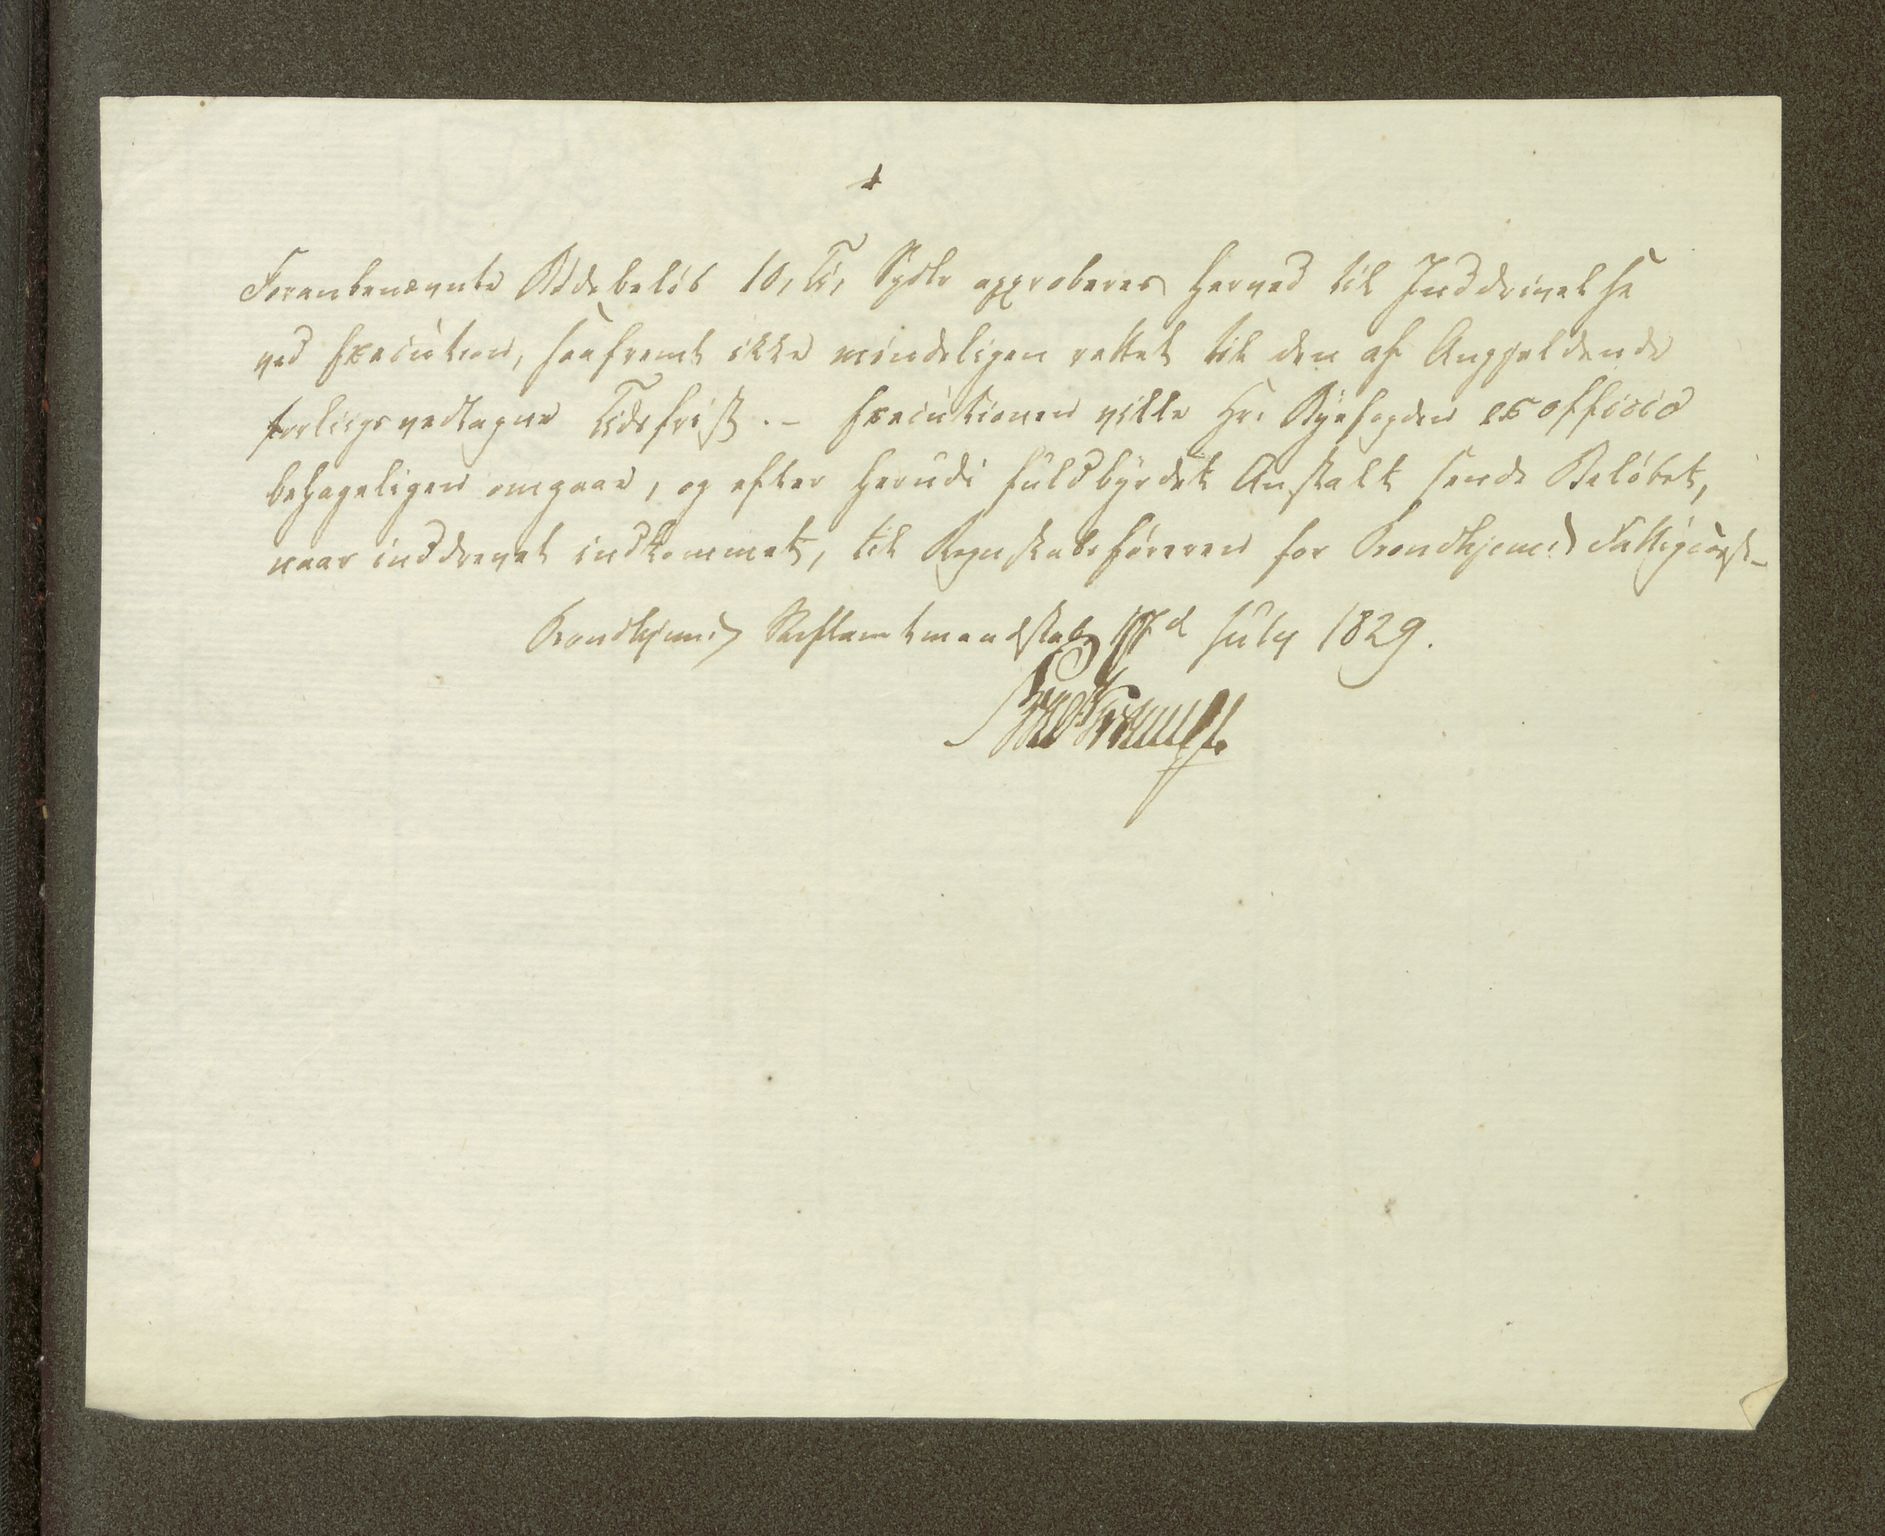 Foranbenævnte Bødebeløb 10, Ti, Spdlr approberes herved til Inddrivelse
ved Execution, saafremt ikke mindeligen rettet til den af Angjeldende
forliigsvedtagne Tidsfrist. – Executionen ville Hr. Byefogden ex officio
behageligen omgaae, og efter herudi fuldbyrdet Anstalt sende Beløbet,
naar inddrevet indkommet, til Regnskabsføreren for Trondhjems Fattig
Trondhjems Stiftamtmandskab 17d July 1829.